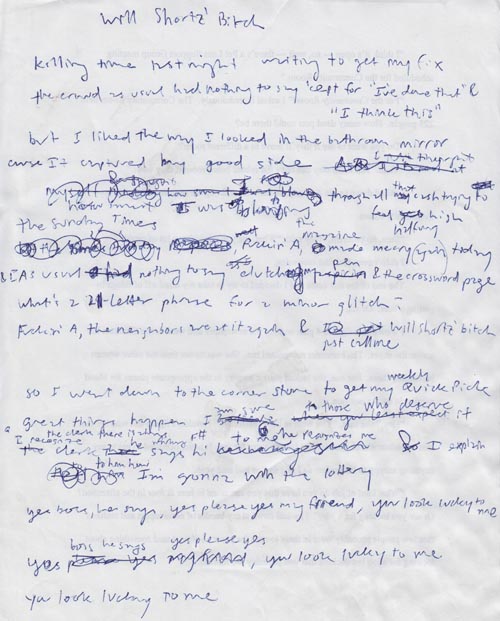 Will Shortz' Bitch
killing time last night waiting to get my fix
the crowd as usual had nothing to say 'cept for "I've done that" &
"I think this"
but I liked the way I looked in the bathroom mirror
cause it captured my good side
how smart I was blowing through all that cash trying to
the Sunday Times feel high
the magazine
section A, made me cry (again) today
& I As usual had nothing to say clutching pen & the crossword page
what's a 21-letter phrase for a minor glitch?
section A, the neighbors were at it again & Will Shortz' bitch
just call me
weekly
so I went down to the corner store to get my Quick Picks
great things happen I'm sure to those who deserve it
the clerk there is
I recognize he recognizes me
the clerk says hi so I explain
to him how
I'm gonna win the lottery
yes boss, he says, yes please yes my friend, you look lucky to me
boss he says yes please yes
yes my friend, you look lucky to me
you look lucky to me